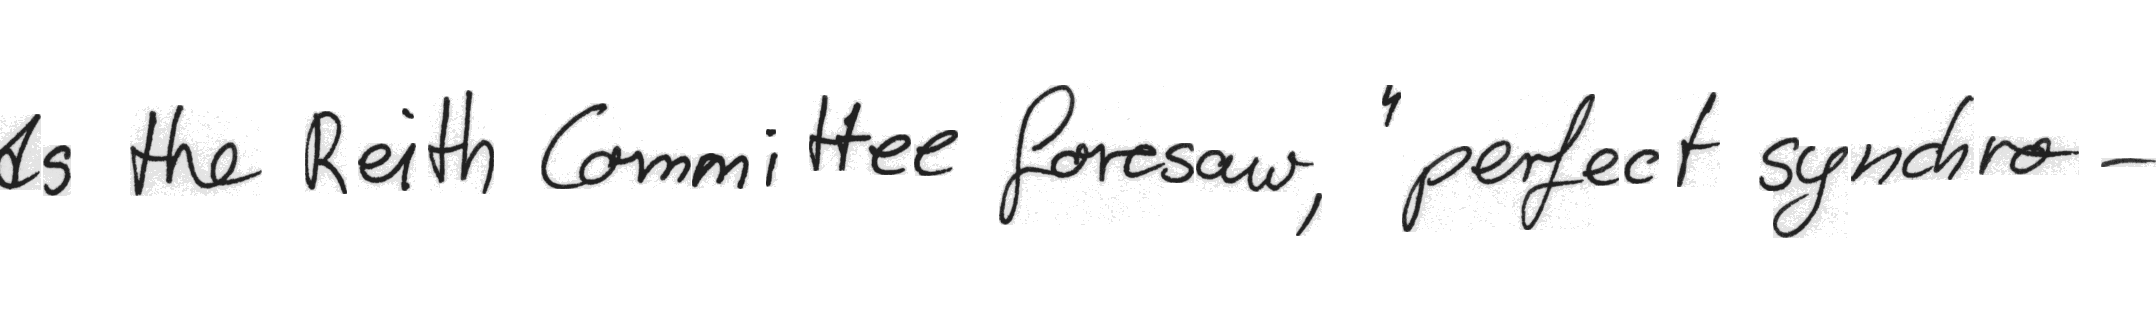 As the Reith Committee foresaw, "perfect synchro-